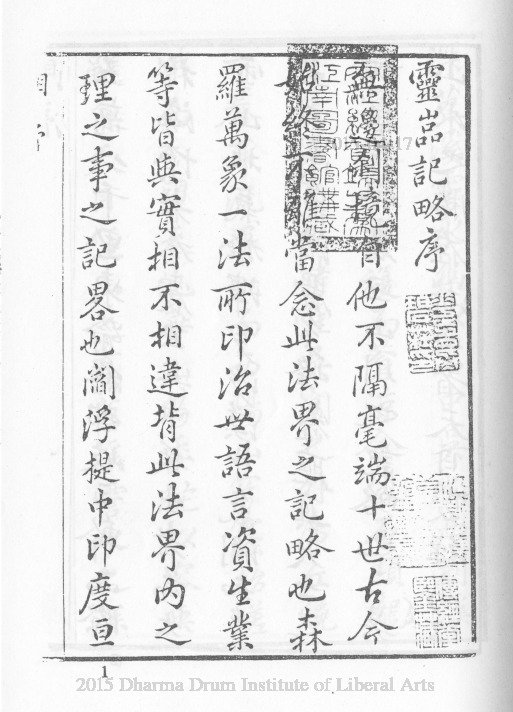 靈嵓記略序
自他不隔毫端十世古今
始終不離當念此法界之記略也森
羅萬象一法所印治世語言資生業
等皆與實相不相違背此法界內之
理之事之記畧也閻浮提中印度亘
1
2015 Dharma Drum Institute of Liberal Arts